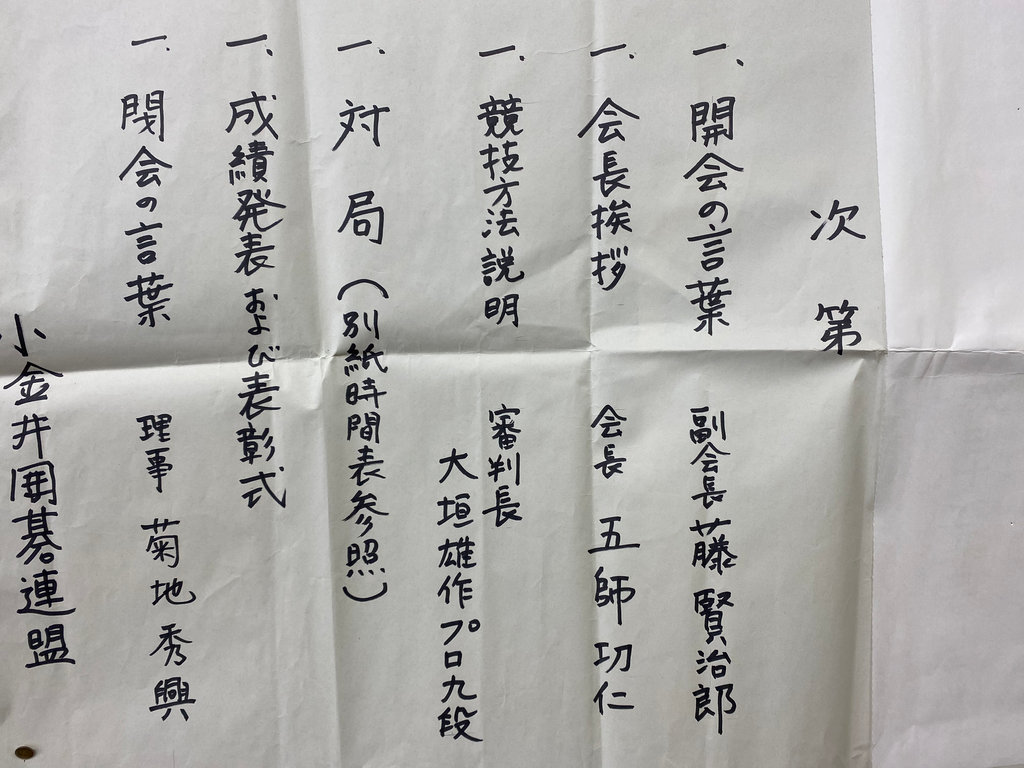 次第
一、開会の言葉 副会長 藤 賢治郎
一、会長挨拶 会長 五師 功仁
一、競技方法説明 審判長
大垣雄作プロ九段
一、対局(別紙時間表参照)
一、成績発表および表彰式
一、閉会の言葉 理事 菊地 秀興
小金井囲碁連盟